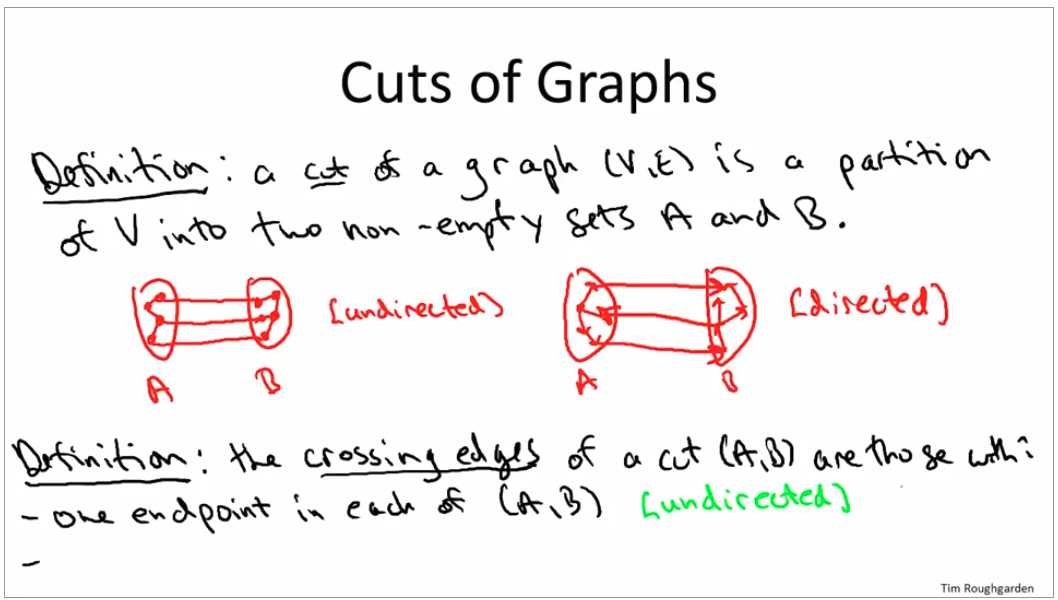 Cuts of Graphs
Definition: a cut of a graph (V,E) is a partition
of V into two non-empty sets A and B.
[undirected] [directed]
A B A B
Definition: the crossing edges of a cut (A,B) are those with:
- one endpoint in each of (A,B) [undirected]
-
Tim Roughgarden